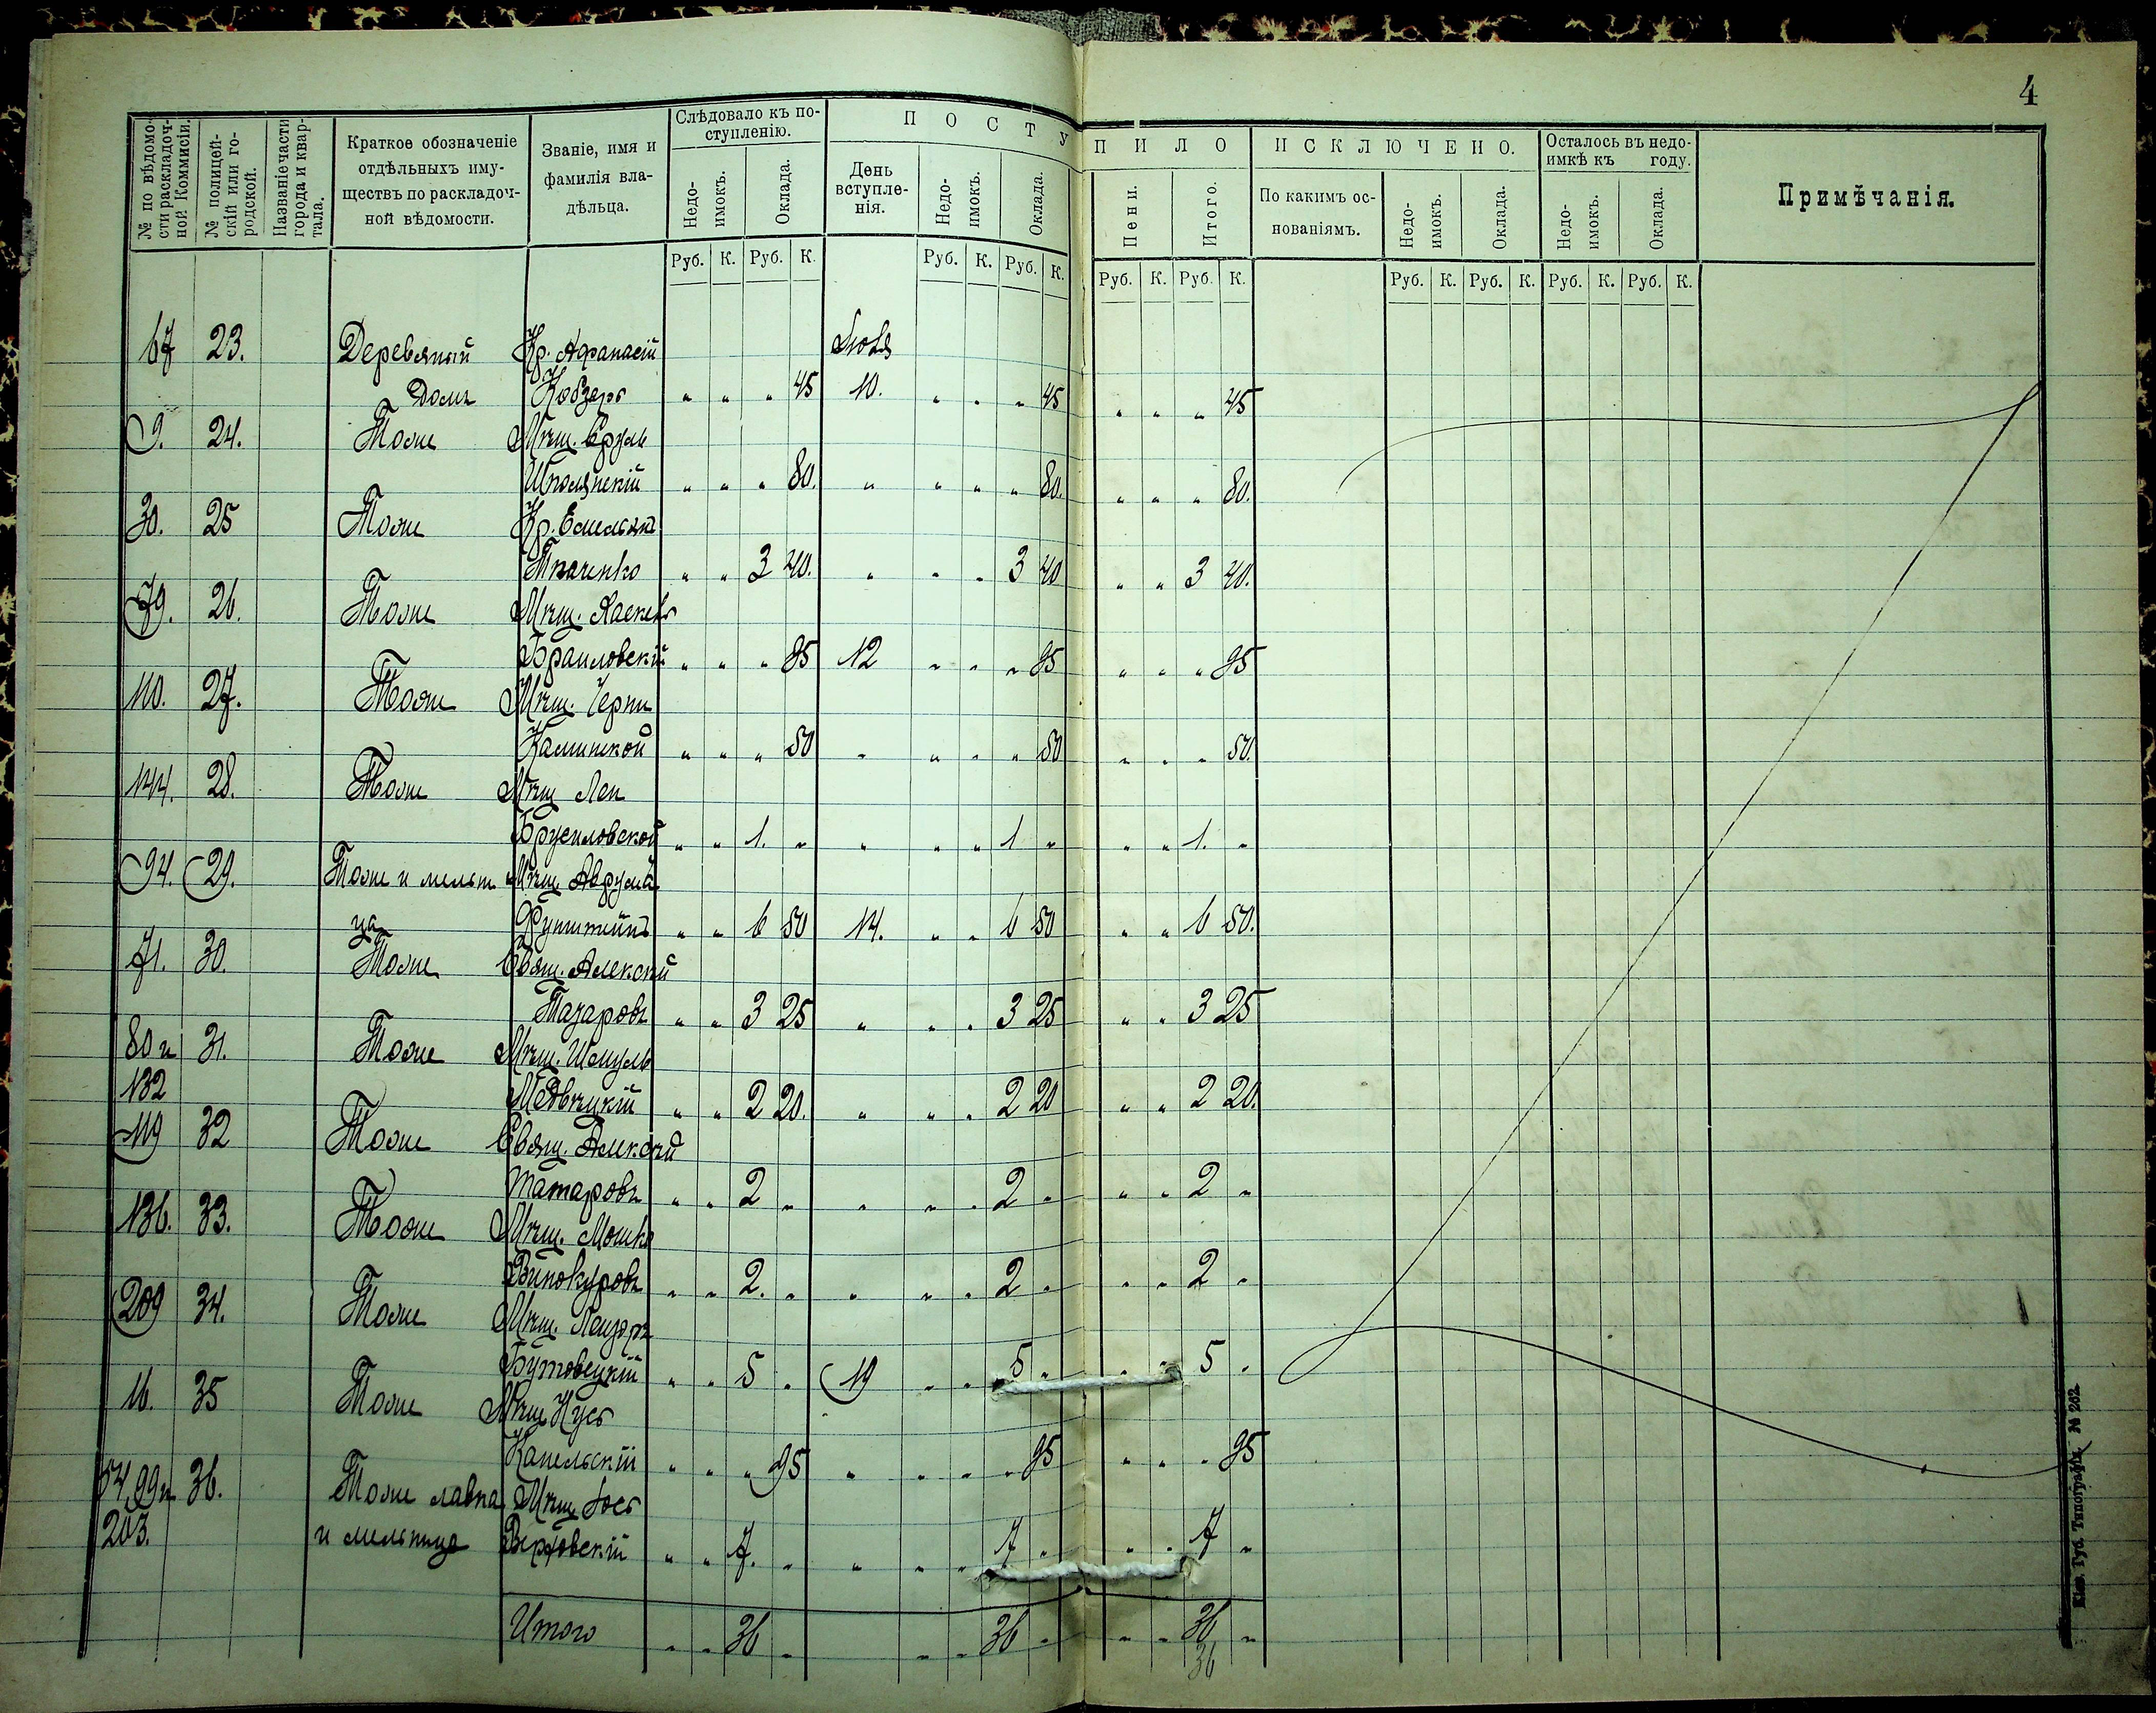 4
№ по вѣдомости раскладочной Коммисіи.
№ полицейскій или городской.
Названіе части города и квартала.
Краткое обозначеніе отдѣльныхъ имуществъ по раскладочной вѣдомости.
Званіе, имя и фамилія владѣльца.
Слѣдовало къ поступленію.
Недоимокъ. Оклада.
П О С Т У П И Л О
День вступленія.
Недоимокъ. Оклада. Пени. Итого.
И С К Л Ю Ч Е Н О.
По какимъ основаніямъ.
Недоимокъ. Оклада.
Осталось въ недоимкѣ къ году.
Недоимокъ. Оклада.
Примѣчанія.
Руб. К. Руб. К. Руб. К. Руб. К. Руб. К. Руб. К. Руб. К. Руб. К. Руб. К. Руб. К.
67 23. Деревяный Кр. Афанасій Іюля
Домъ Кобзарь " " " 45 10. " " " 45 " " " 45
9. 24. Тоже Мѣщ. Сруль
Школянскій " " " 80. " " " " 80. " " " 80.
30. 25 Тоже Кр. Емельянъ
Ткаченко " " 3 40. " " " 3 40 " " 3 40.
79. 26. Тоже Мѣщ. Хаскель
Браиловскій " " " 95 12 " " " 95 " " " 95
110. 27. Тоже Мѣщ. Черни
Каминской " " " 50 " " " " 50 " " " 50.
144. 28. Тоже Мѣщ Леи
Брусиловской " " 1. " " " " 1 " " " 1. "
94. 29. Тоже и мельн Мѣщ. Аврума
ца " " 6 50 14. " " 6 50 " " 6 50.
71. 30. Тоже Свящ. Алексѣй
" " 3 25 " " " 3 25 " " 3 25
80 и 31. Тоже Мѣщ. Шмуль
132 Медвѣцкій " " 2 20. " " " 2 20 " " 2 20.
119 32 Тоже Свящ. Алексѣй
Татаровъ " " 2 " " " " 2 " " " 2 "
136. 33. Тоже Мѣщ. Мошко
Винокуровъ " " 2. " " " " 2 " " " 2 "
209 34. Тоже Мѣщ. Лейзеръ
Бутовецкій " " 5 " 19 " " 5 " " " 5 "
16. 35 Тоже Мѣщ Нусь
Капельскій " " " 95 " " " " 95 " " " 95
54, 99 и 36. Тоже лавка Мѣщ Іось
203. и мельница Верховскій " " 7. " " " " 7 " " " 7 "
Итого " " 36 " " " 36 " " " 36 "
36
Кіев. Губ. Типографія. № 262